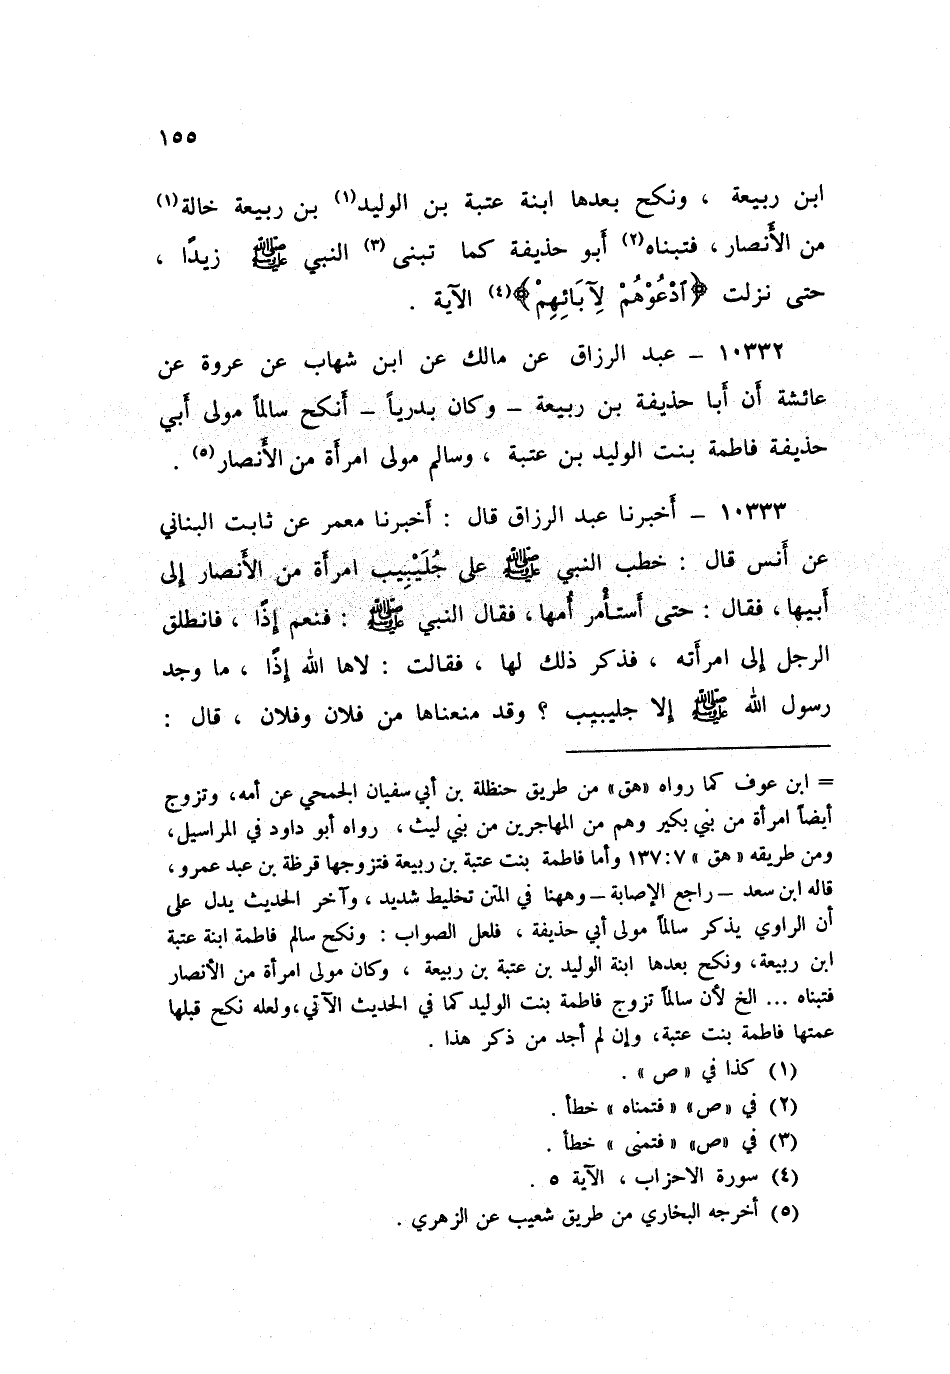 ١٥٥
ابن ربيعة ، ونكح بعدها ابنة عتبة بن الوليد(١) بن ربيعة خالة(١)
من الأَنصار ، فتبناه(٢) أَبو حذيفة كما تبنى(٣) النبي ﷺ زيدًا ،
حتى نزلت ﴿ٱدْعُوْهُمْ لِآبَائِهِمْ﴾(٤) الآية .
١٠٣٣٢ ــ عبد الرزاق عن مالك عن ابن شهاب عن عروة عن
عائشة أن أَبا حذيفة بن ربيعة ــ وكان بدرياً ــ أَنكح سالماً مولى أَبي
حذيفة فاطمة بنت الوليد بن عتبة ، وسالم مولى امرأَة من الأَنصار(٥) .
١٠٣٣٣ ــ أَخبرنا عبد الرزاق قال : أَخبرنا معمر عن ثابت البناني
عن أَنس قال : خطب النبي ﷺ على جُلَيْبِيب امرأَة من الأَنصار إلى
أَبيها ، فقال : حتى أَستأْمر أُمها ، فقال النبي ﷺ : فنعم إذًا ، فانطلق
الرجل إلى امرأَته ، فذكر ذلك لها ، فقالت : لاها الله إذًا ، ما وجد
رسول الله ﷺ إلا جليبيب ؟ وقد منعناها من فلان وفلان ، قال :
= ابن عوف كما رواه «هق» من طريق حنظلة بن أبي سفيان الجمحي عن أمه، وتزوج
أيضاً امرأة من بني بكير وهم من المهاجرين من بني ليث ، رواه أبو داود في المراسيل،
ومن طريقه «هق» ٧:١٣٧ وأما فاطمة بنت عتبة بن ربيعة فتزوجها قرظة بن عبد عمرو ،
قاله ابن سعد ــ راجع الإصابة ــ وههنا في المتن تخليط شديد ، وآخر الحديث يدل على
أن الراوي يذكر سالماً مولى أبي حذيفة ، فلعل الصواب : ونكح سالم فاطمة ابنة عتبة
ابن ربيعة، ونكح بعدها ابنة الوليد بن عتبة بن ربيعة ، وكان مولى امرأة من الأنصار
فتبناه ... الخ لأن سالماً تزوج فاطمة بنت الوليد كما في الحديث الآتي،ولعله نكح قبلها
عمتها فاطمة بنت عتبة، وإن لم أجد من ذكر هذا .
(١) كذا في «ص» .
(٢) في «ص» «فتمناه» خطأ .
(٣) في «ص» «فتمنى» خطأ .
(٤) سورة الاحزاب ، الآية ٥ .
(٥) أخرجه البخاري من طريق شعيب عن الزهري .